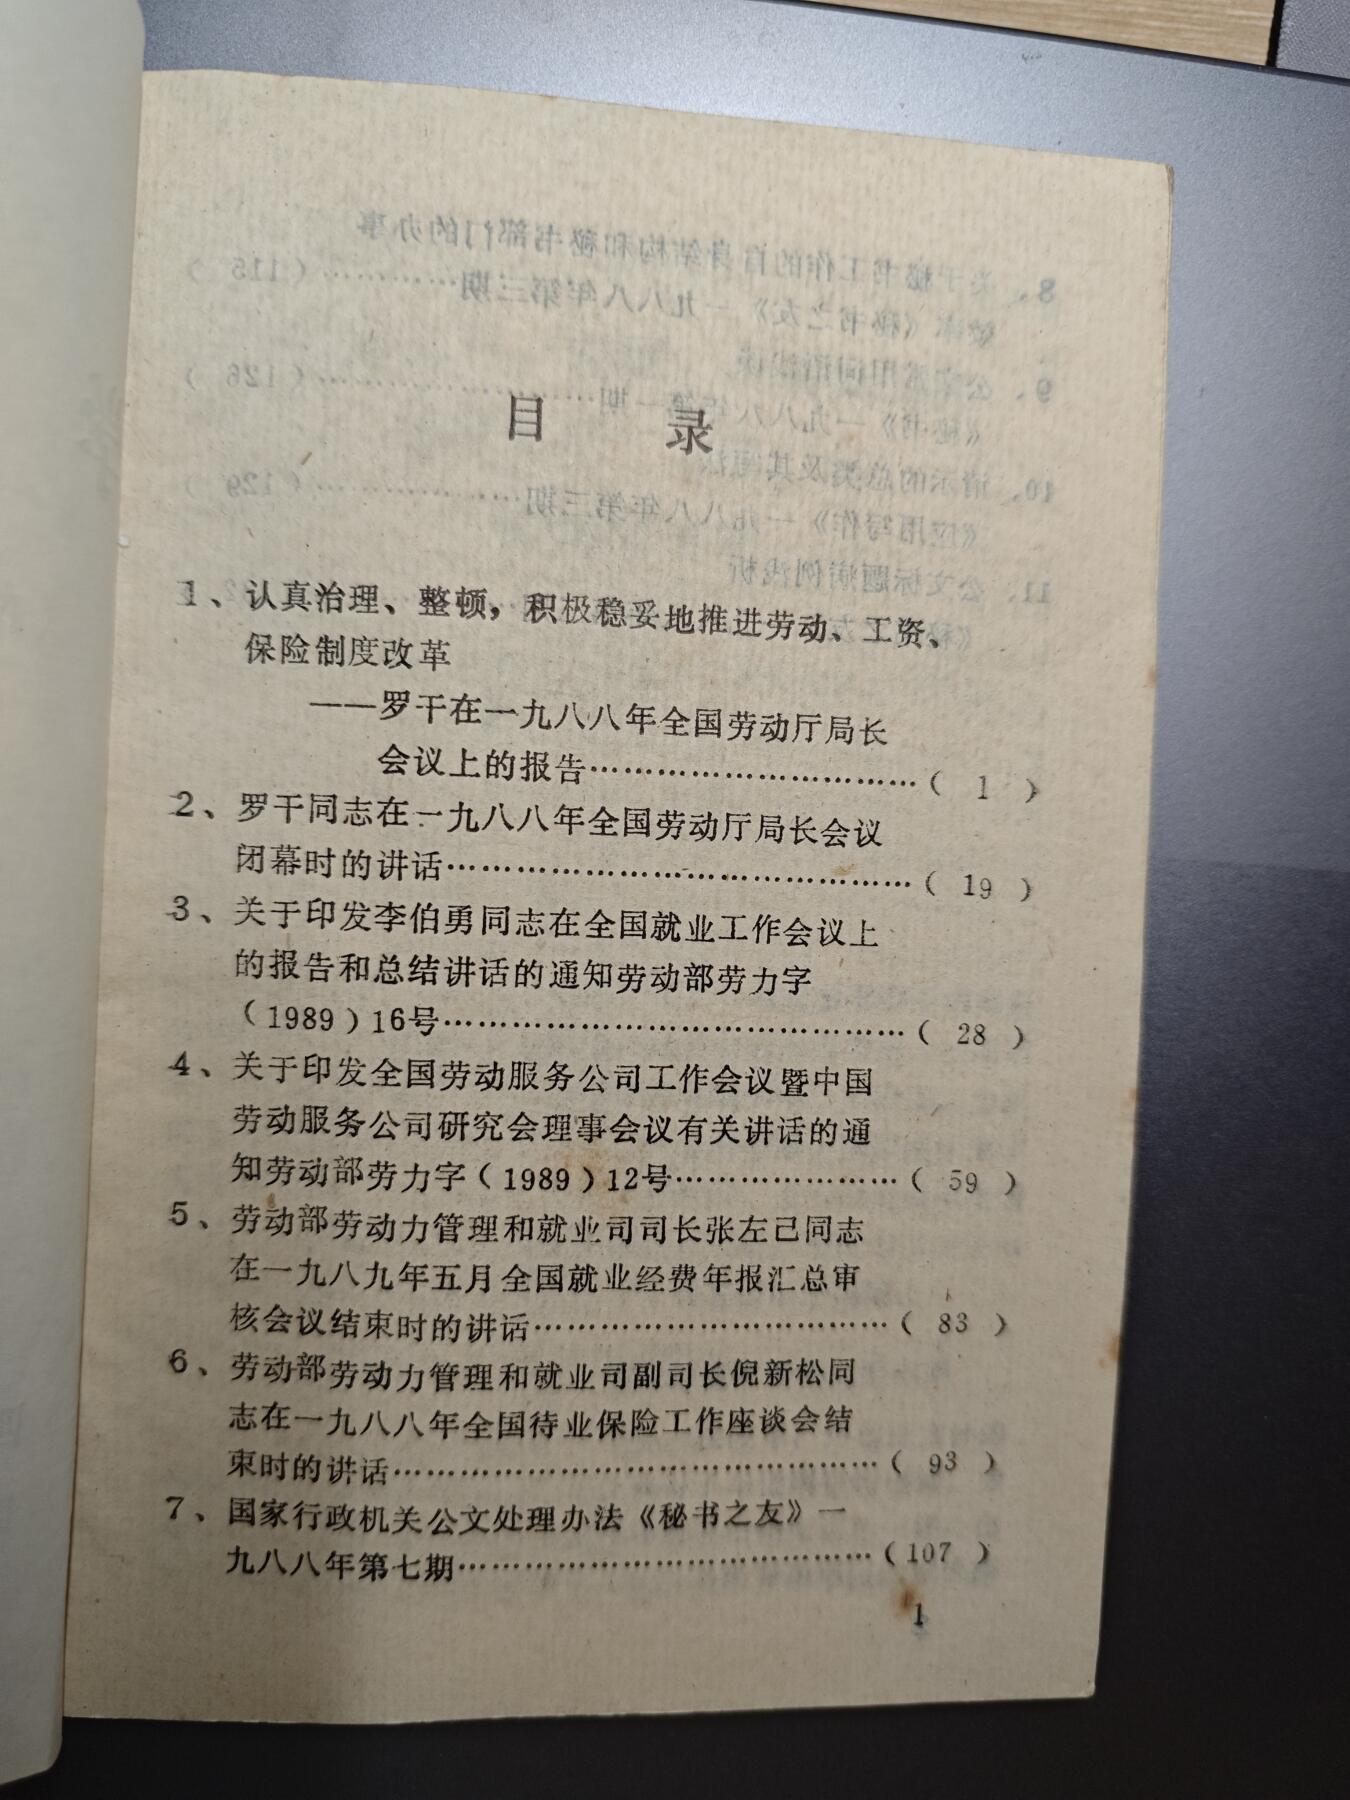 目 录
1、认真治理、整顿，积极稳妥地推进劳动、工资、
保险制度改革
——罗干在一九八八年全国劳动厅局长
会议上的报告……………………………（ 1 ）
2、罗干同志在一九八八年全国劳动厅局长会议
闭幕时的讲话………………………………………（ 19 ）
3、关于印发李伯勇同志在全国就业工作会议上
的报告和总结讲话的通知劳动部劳力字
（1989）16号………………………………………（ 28 ）
4、关于印发全国劳动服务公司工作会议暨中国
劳动服务公司研究会理事会议有关讲话的通
知劳动部劳力字（1989）12号…………………（ 59 ）
5、劳动部劳动力管理和就业司司长张左己同志
在一九八九年五月全国就业经费年报汇总审
核会议结束时的讲话……………………………（ 83 ）
6、劳动部劳动力管理和就业司副司长倪新松同
志在一九八八年全国待业保险工作座谈会结
束时的讲话…………………………………………（ 93 ）
7、国家行政机关公文处理办法《秘书之友》一
九八八年第七期……………………………………（107 ）
1